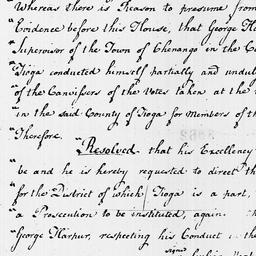 Whereas there is Reason to presume from
"Evidence before this House, that George Ha
"Supervisor of the Town of Chenango in the Co
"Tioga conducted himself partially and undul
"of the Canvassers of the Votes taken at the
"in the said County of Tioga for Members of th
"Therefore.
"Resolved that his Excellency
"be and he is hereby requested to direct th
"for the District of which Tioga is a part,
"a Prosecution to be instituted, again
"George Harpur, respecting his Conduct in the